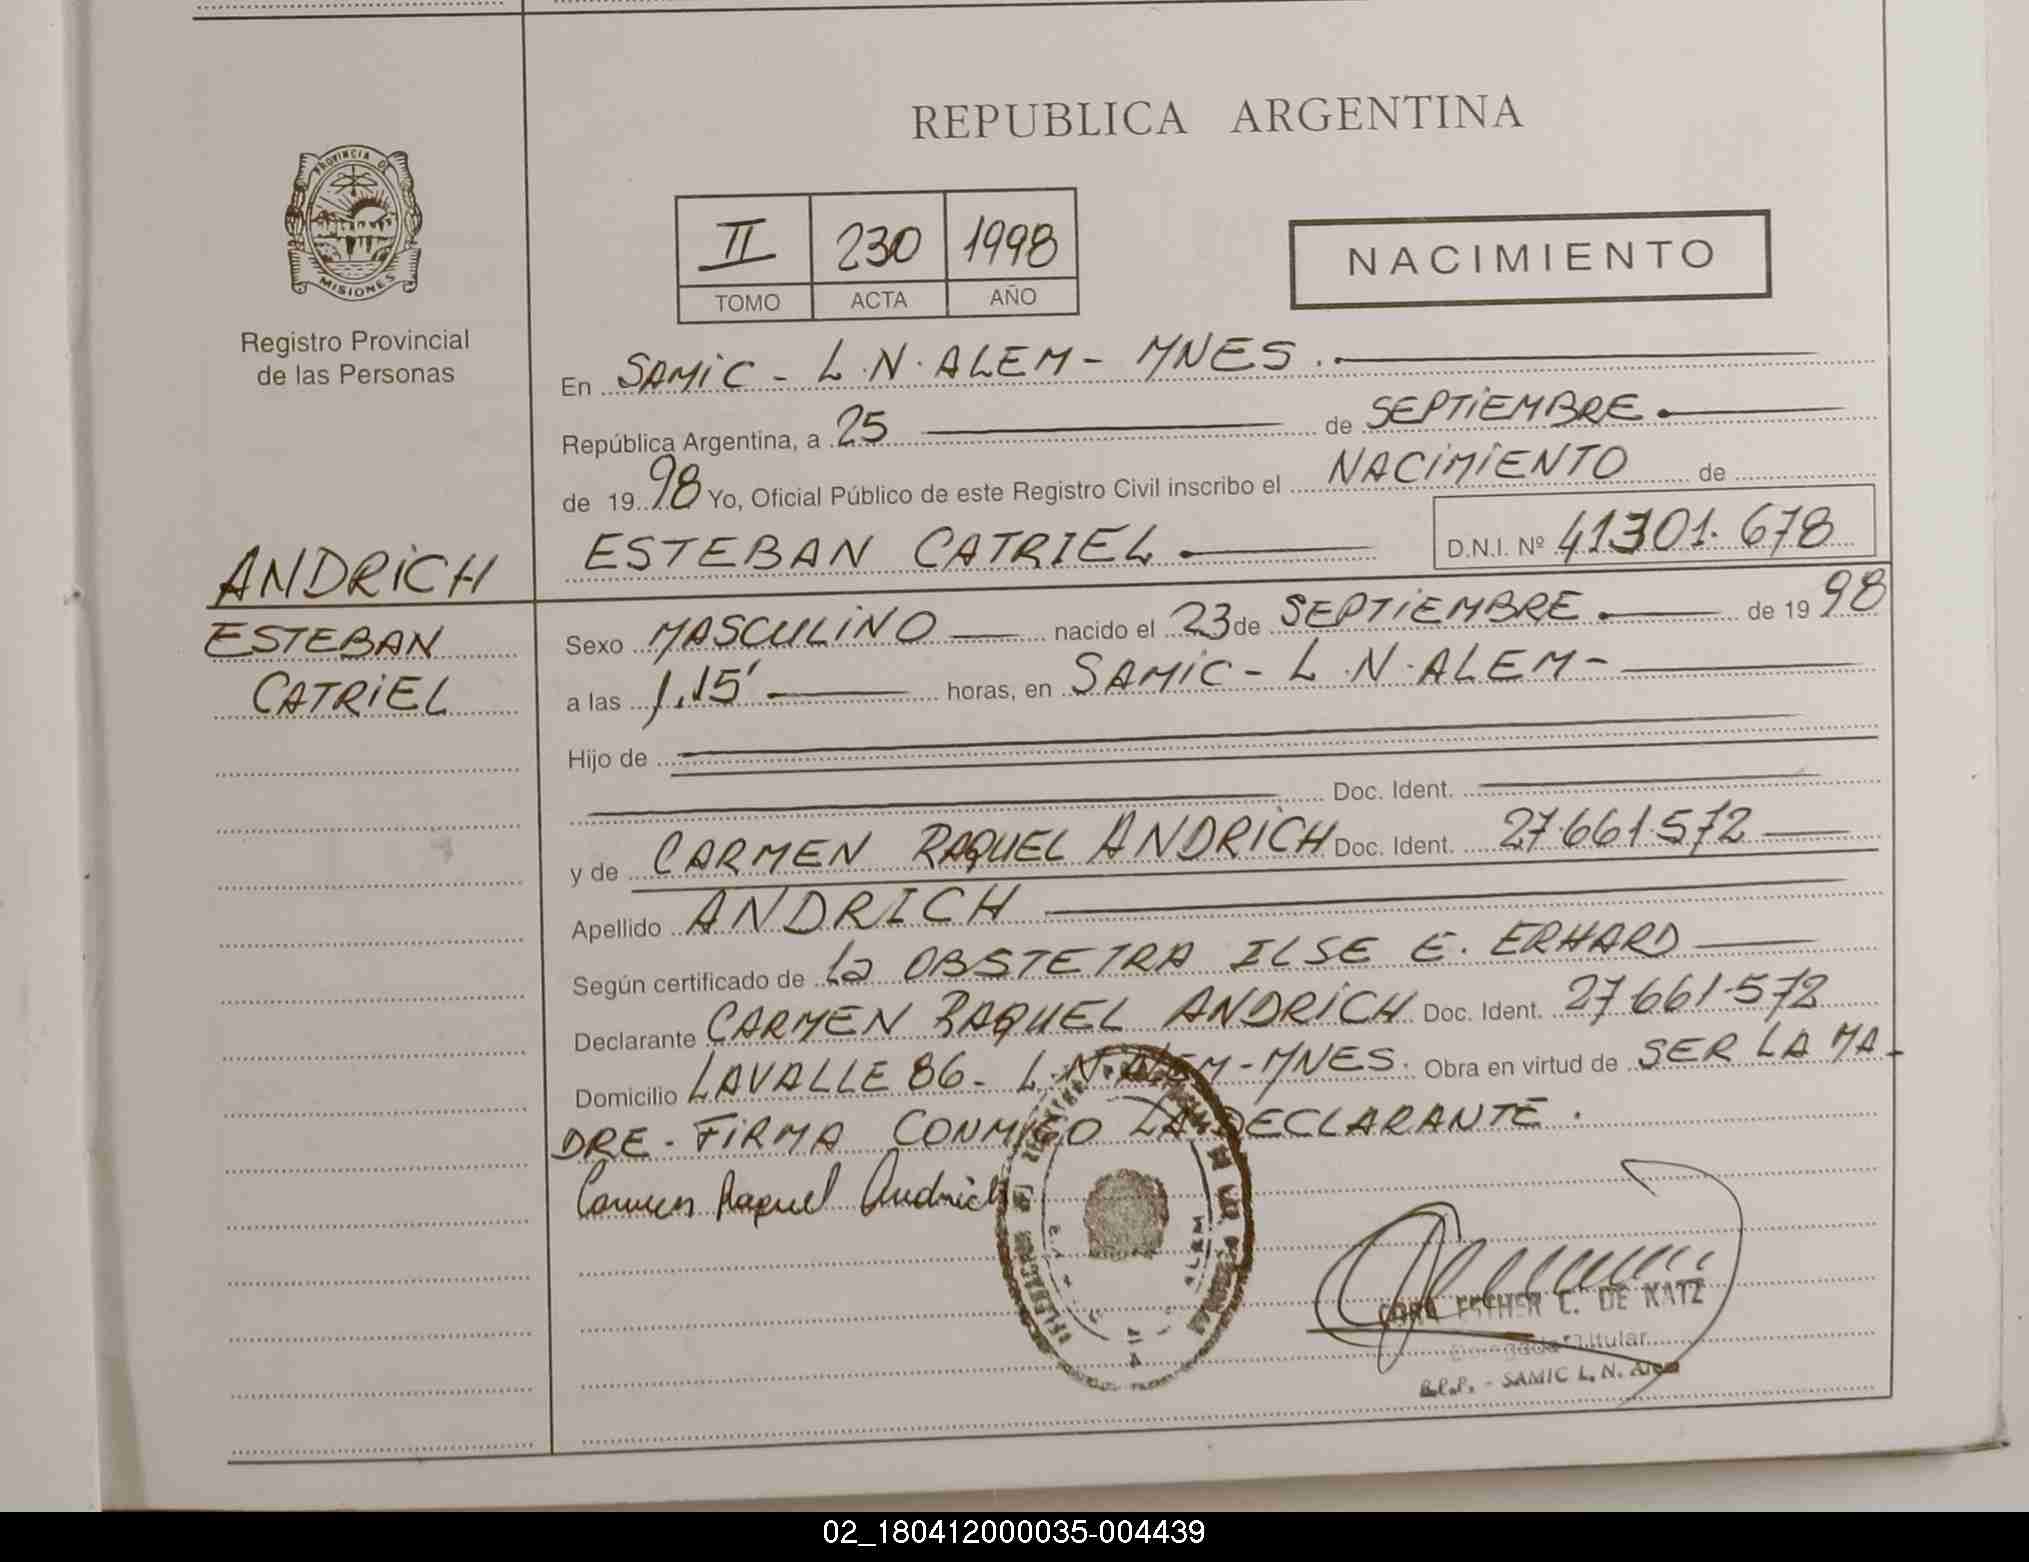 REPUBLICA ARGENTINA
PROVINCIA DE
MISIONES
Registro Provincial
de las Personas
II 230 1998
TOMO ACTA AÑO
NACIMIENTO
En SAMIC - L.N. ALEM - MNES.
República Argentina, a 25 de SEPTIEMBRE
de 1998 Yo, Oficial Público de este Registro Civil inscribo el NACIMIENTO de
ESTEBAN CATRIEL D.N.I. Nº 41301.678
ANDRICH
ESTEBAN
CATRIEL
Sexo MASCULINO nacido el 23 de SEPTIEMBRE de 1998
a las 1,15' horas, en SAMIC - L.N. ALEM -
Hijo de
Doc. Ident.
y de CARMEN RAQUEL ANDRICH Doc. Ident. 27.661.572
Apellido ANDRICH
Según certificado de la OBSTETRA ILSE E. ERHARD
Declarante CARMEN RAQUEL ANDRICH Doc. Ident. 27661.572
Domicilio LAVALLE 86 - L.N. ALEM - MNES. Obra en virtud de SER LA MA-
DRE - FIRMA CONMIGO LA DECLARANTE.
Carmen Raquel Andrich
ESTHER C. DE KATZ
Titular
SAMIC L. N. Alem
02_180412000035-004439